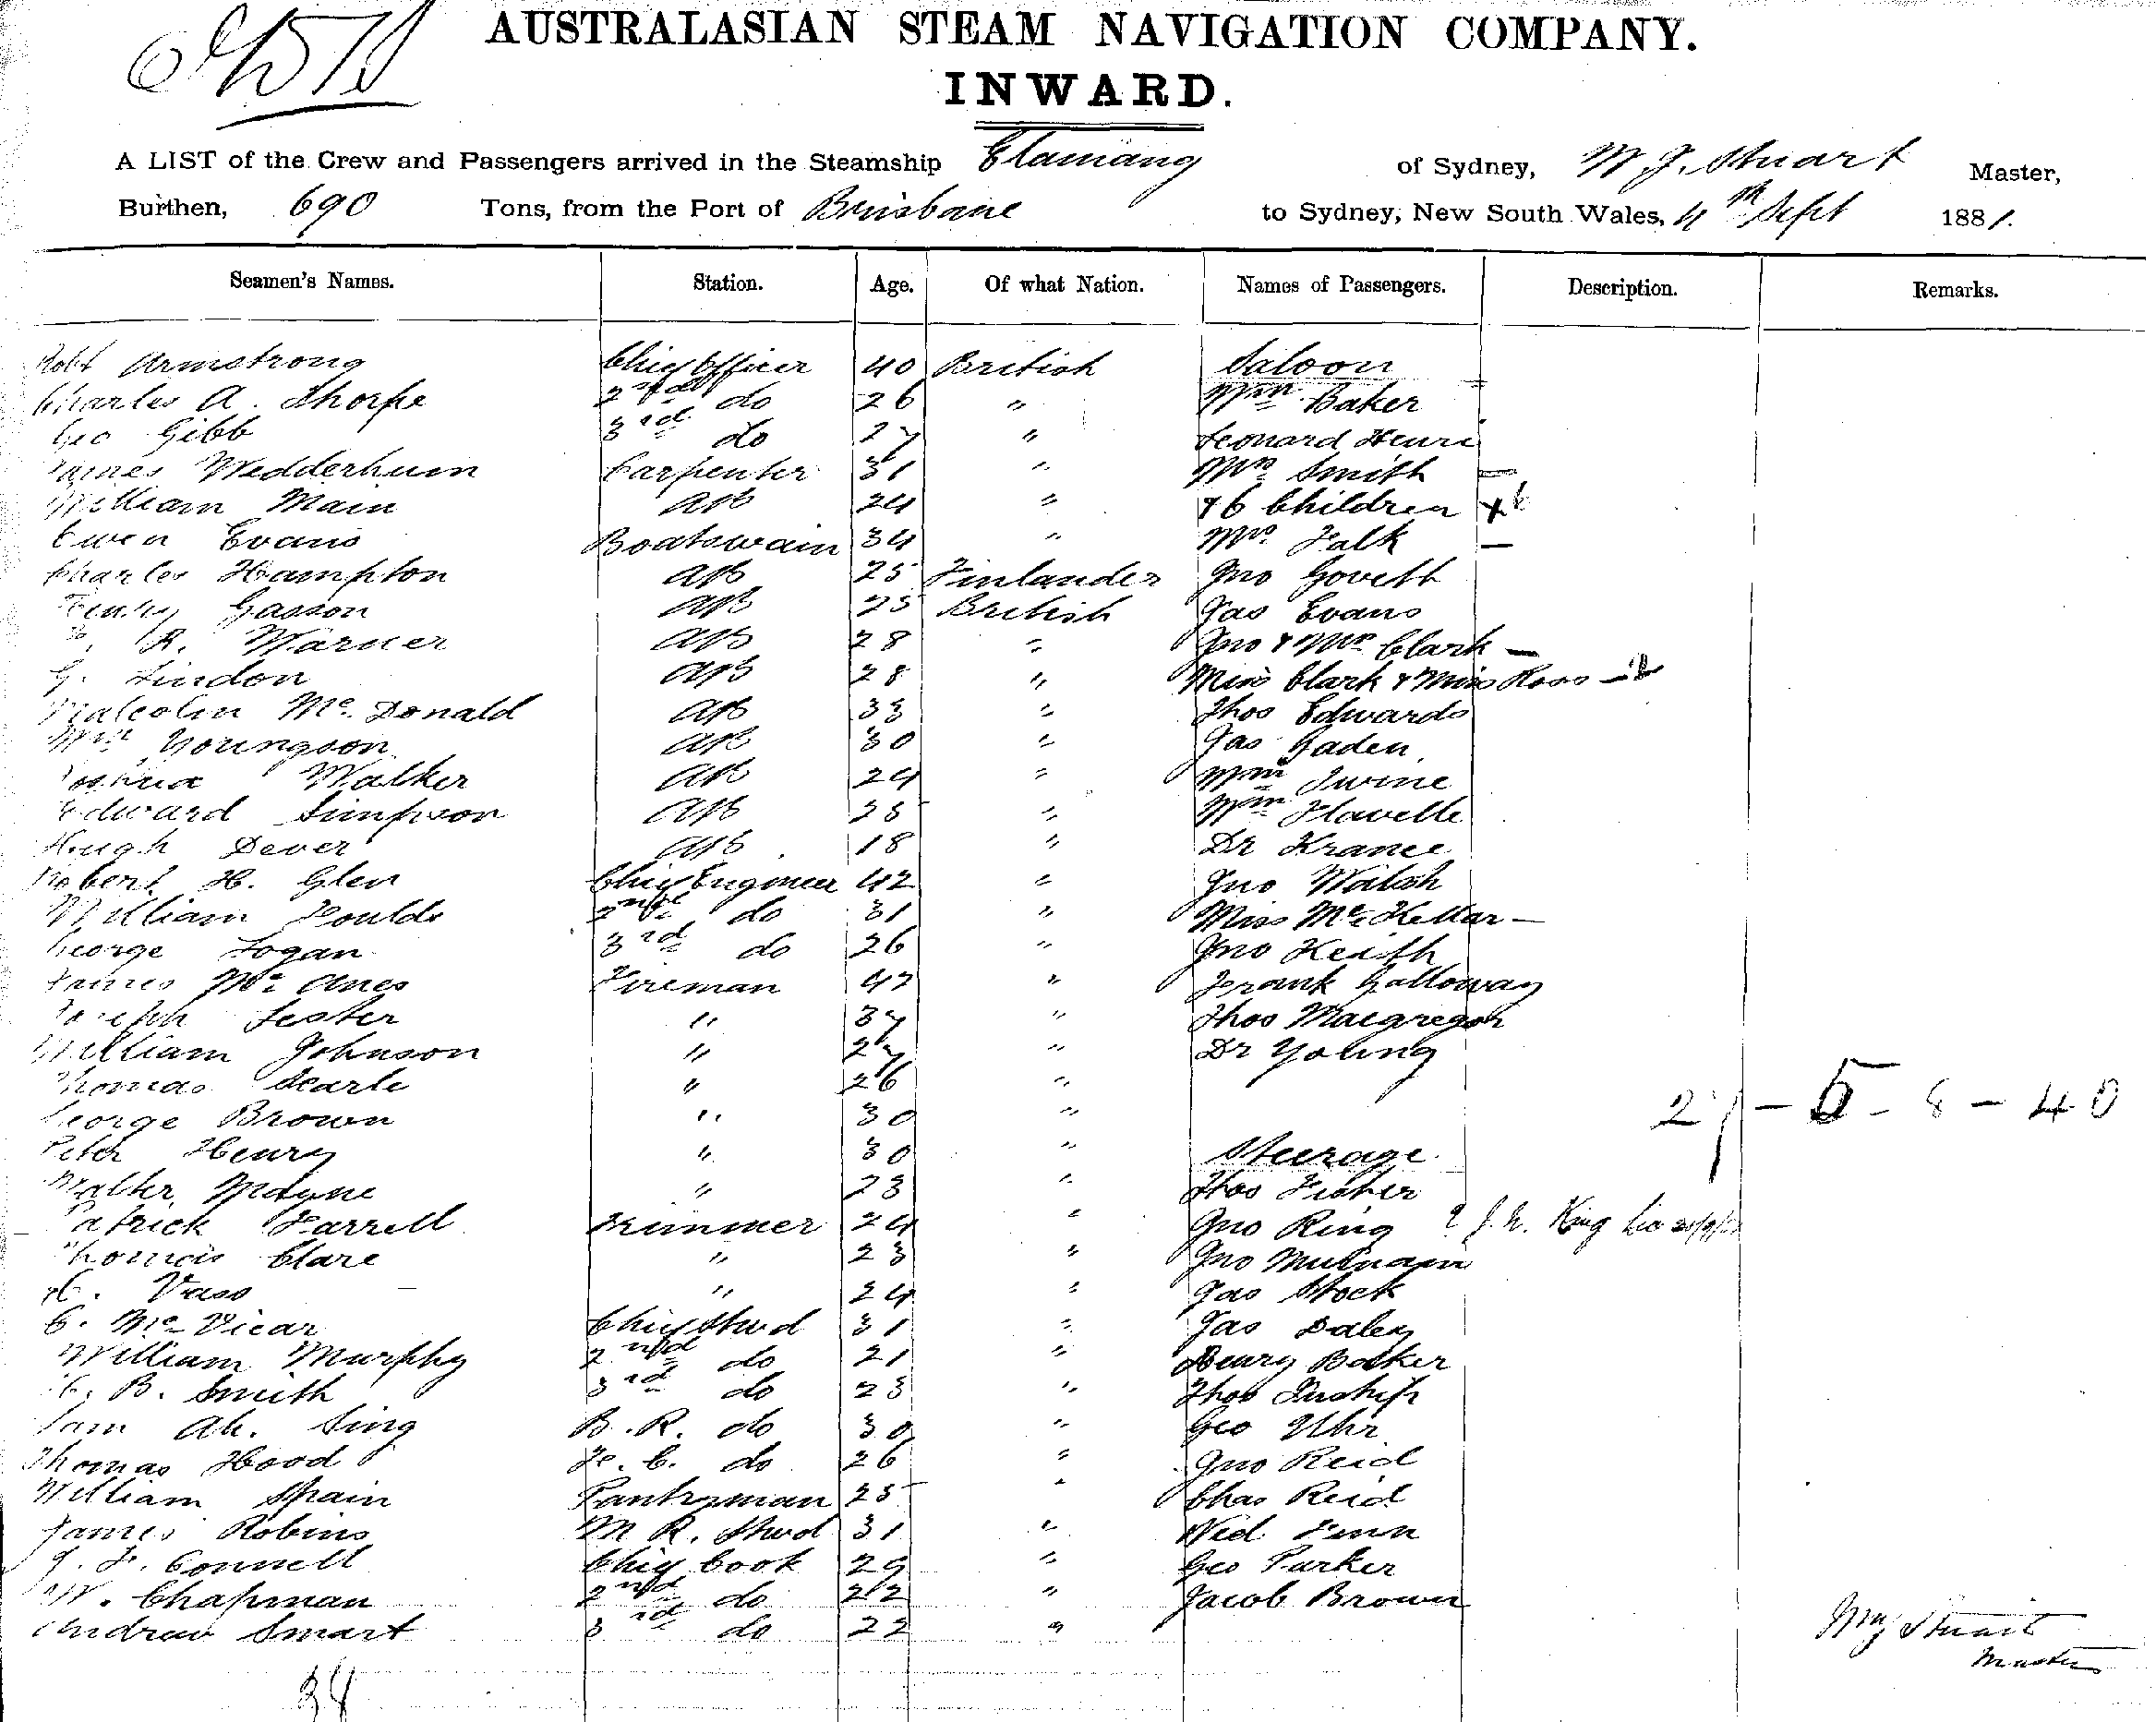 AUSTRALASIAN STEAM NAVIGATION COMPANY.
INWARD.
A LIST of the Crew and Passengers arrived in the Steamship Elamang of Sydney, W J. Stuart Master,
Burthen, 690 Tons, from the Port of Brisbane to Sydney, New South Wales, 4th Sept 1881.
Seamen's Names. Station. Age. Of what Nation. Names of Passengers. Description. Remarks.
Robt Armstrong Chief Officer 40 British Saloon
Charles A. Thorpe 2nd do 26 " Wm Baker
Geo Gibb 3rd do 27 " Leonard Henri
James Wedderburn Carpenter 31 " Mrs Smith —
William Main AB 24 " & 6 Children + 6
Ewen Evans Boatswain 34 " Mrs Falk —
Charles Hampton AB 25 Finlander Jno Govett
Henry Gasson AB 25 British Jas Evans
R. Warner AB 28 " Jno & Mrs Clark —
G. Lindon AB 28 " Miss Clark & Miss Ross —
Malcolm McDonald AB 33 " Thos Edwards
Wm Youngson AB 30 " Jas Gaden
Joshua Walker AB 24 " Wm Irvine
Edward Simpson AB 25 " Wm Flavelle
Hugh Dever AB 18 "
Dr
Robert H. Glen Chief Engineer 42 " Jno Walsh
William Foulds 2nd do 31 " Miss McKellar —
George Logan 3rd do 26 " Jno Keith
James McAnes Fireman 47 " Frank Galloway
Joseph Lester " 37 " Thos Macgregor
William Johnson " 27 " Dr Young
Thomas Searle " 26 "
George Brown " 30 " 27 - 5 - 8 - 40
Peter Henry " 30 " Steerage
Walter Mayne " 23 " Thos Fisher
Patrick Farrell Trimmer 24 " Jno Ring ? J. W. King
Thomas Clare " 23 " Jno
Vass " 24 " Jas Stock
C. McVicar Chief Stwd 31 " Jas Daley
William Murphy 2nd do 21 " Henry Barker
B. Smith 3rd do 23 " Thos Inship
Sam Ah. Sing B. R. do 30 " Geo Uhr
Thomas Hood F. C. do 26 " Jno Reid
William Spain Pantryman 25 " Chas Reid
James Robins M R. Stwd 31 " Ned Fenn
J. F. Connell Chief Cook 29 " Geo Parker
W. Chapman 2nd do 22 " Jacob Brown
Andrew Smart 3rd do 22 "
Wm J Stuart
Master